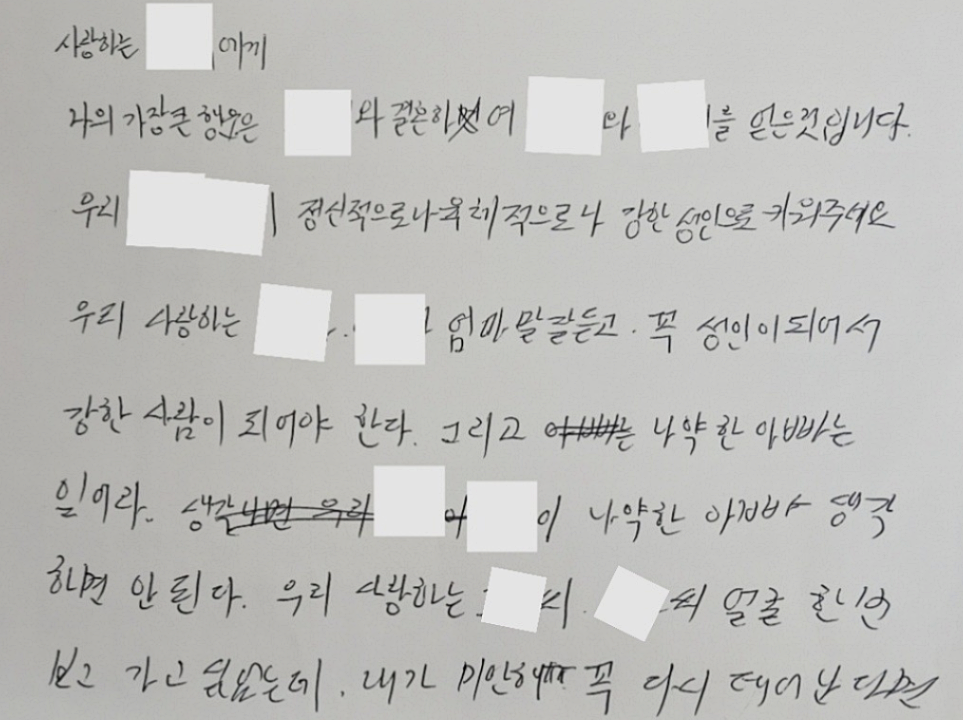 사랑하는 에게
나의 가장큰 행운은 와 결혼하여 와 를 얻은것입니다.
우리 정신적으로나 육체적으로나 강한 성인으로 키워주세요
우리 사랑하는 . 엄마 말잘듣고. 꼭 성인이되어서
강한 사람이 되어야 한다. 그리고 아빠는 나약한 아빠는
잊어라. 생각나면 우리 이 나약한 아빠 생각
하면 안 된다. 우리 사랑하는 씨. 씨 얼굴 한번
보고 가고 싶었는데. 내가 미안해 꼭 다시 태어난다면